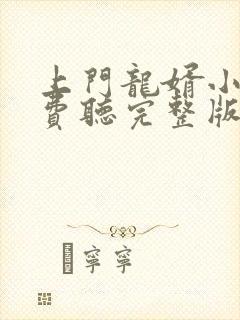 上門龍婿小
費聽完整版
寧寧